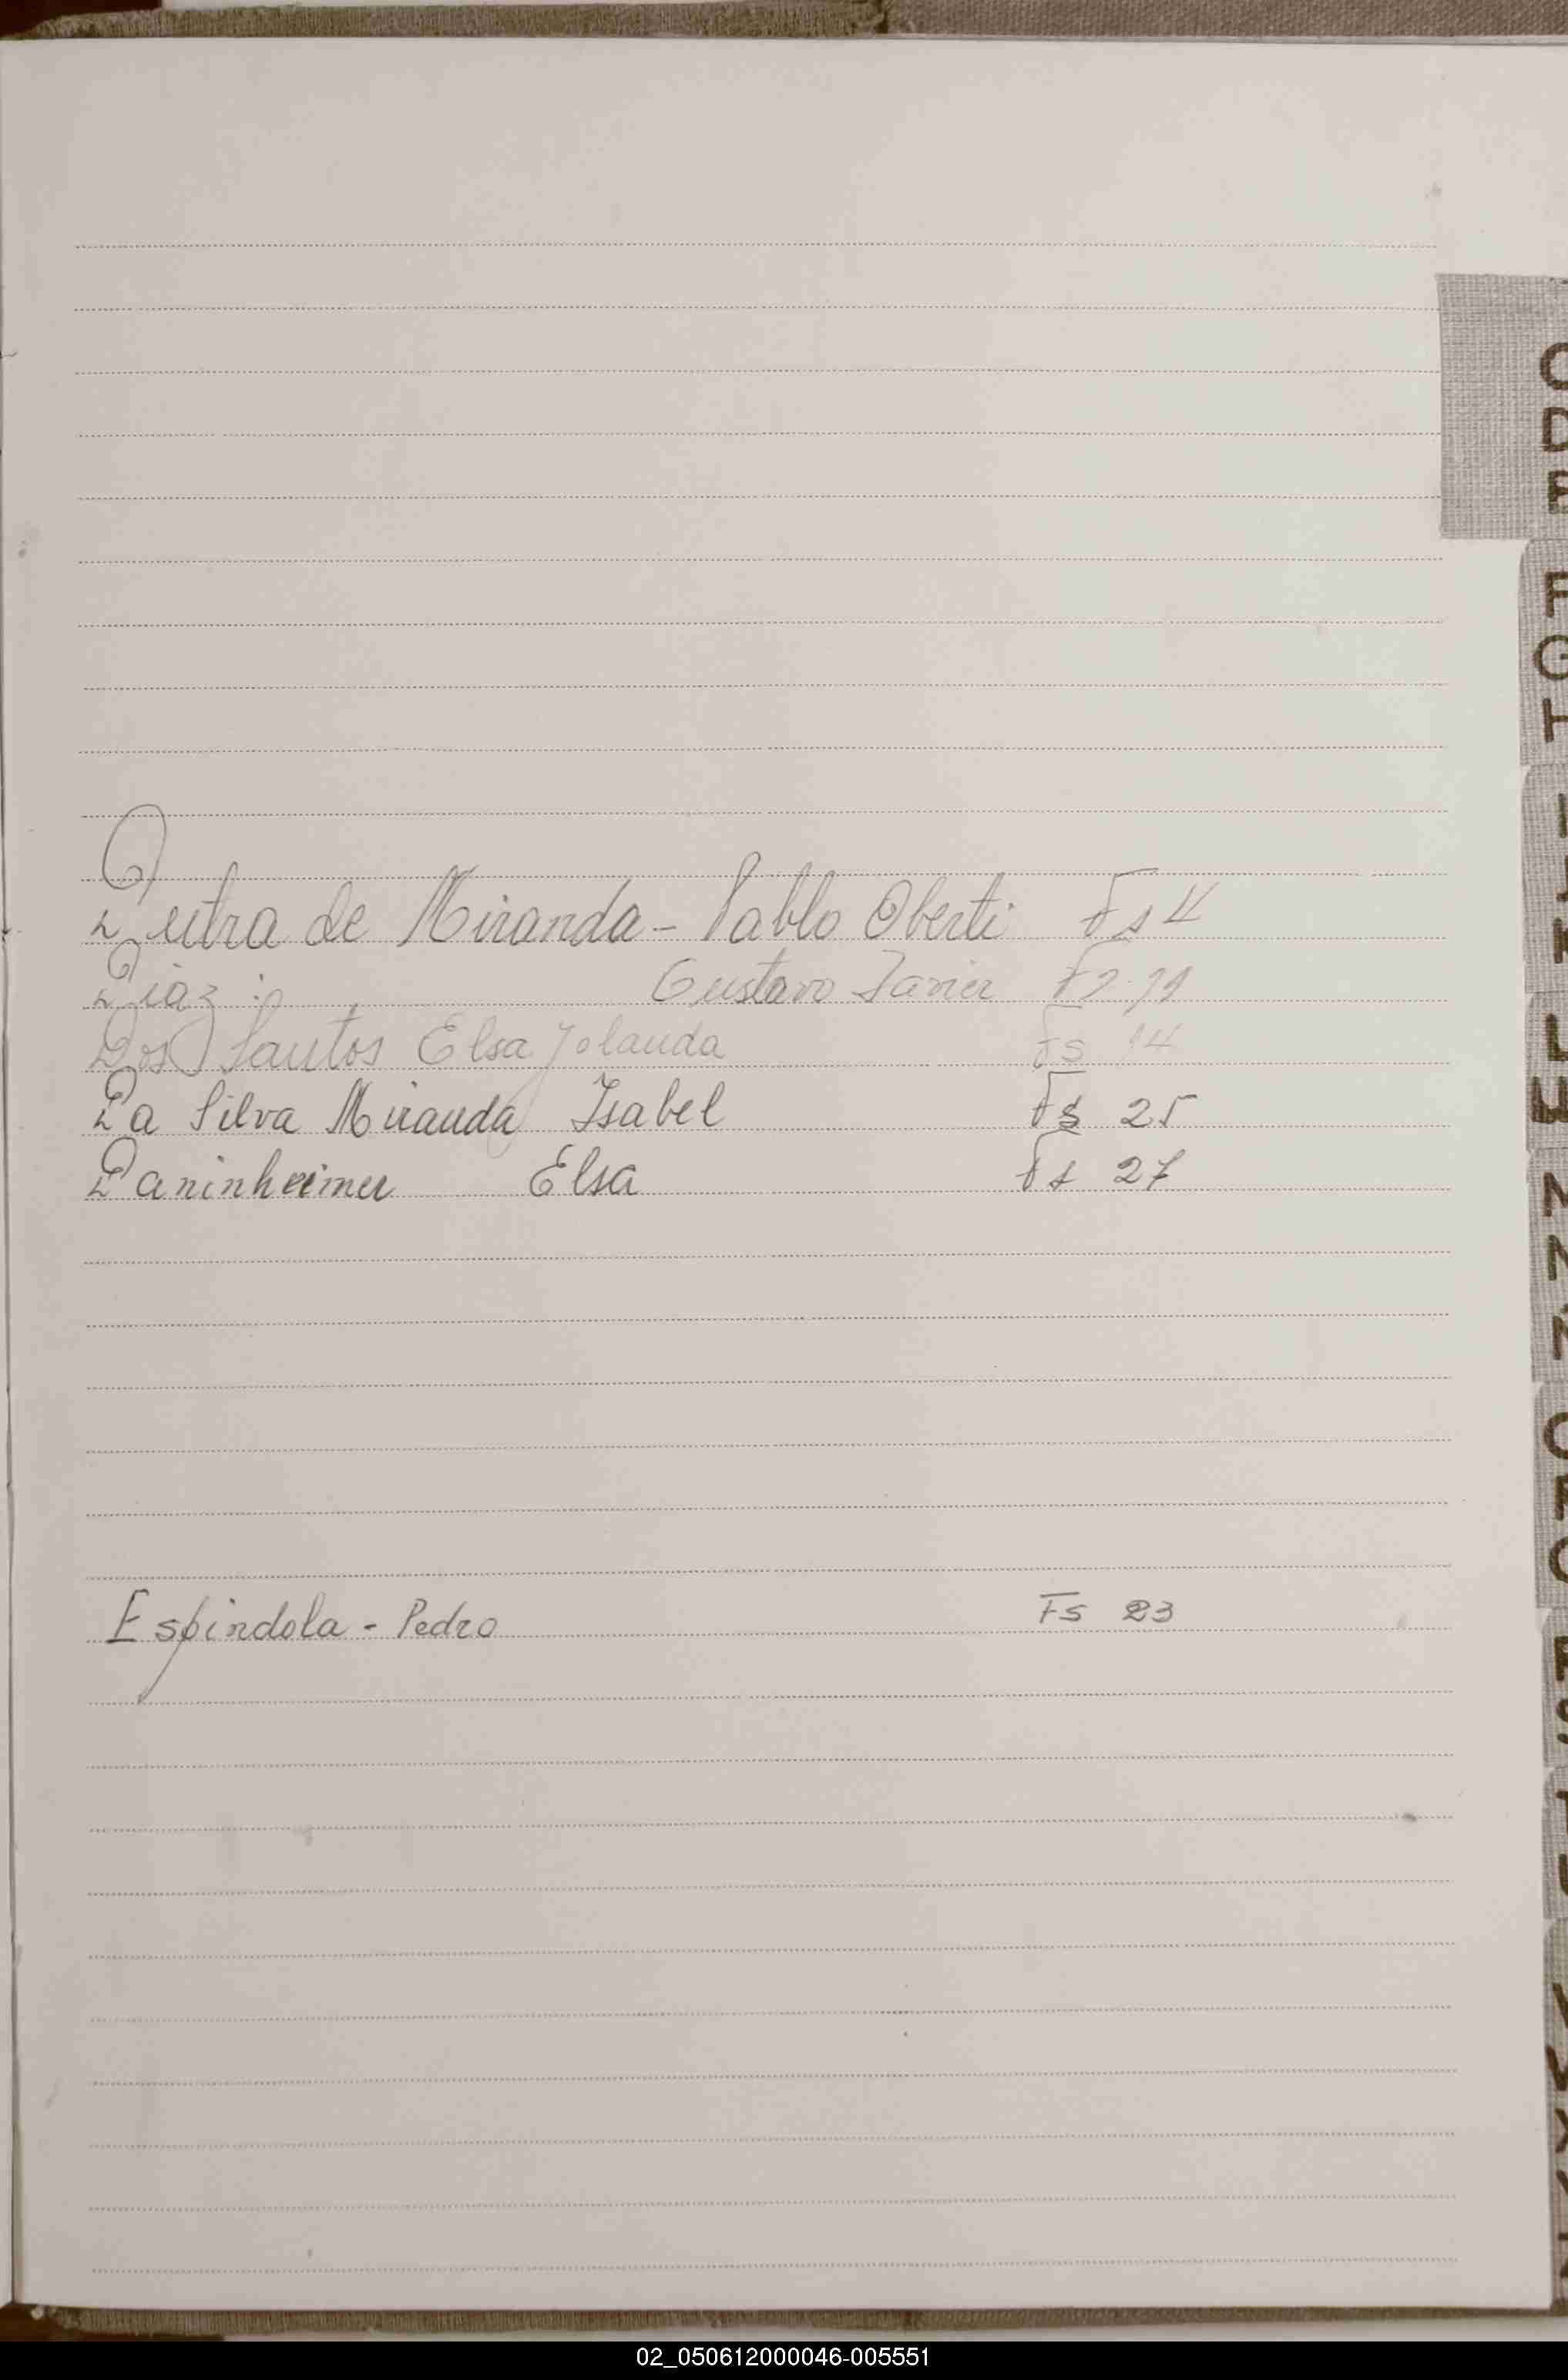 Dutra de Miranda - Pablo Oberti Fs 4
Diaz : Gustavo Javier Fs. 11
Dos Santos Elsa Yolanda Fs 14
Da Silva Miranda Isabel Fs 25
Daninheimer Elsa Fs 27
Espindola - Pedro Fs 23
C
D
E
F
G
H
I
J
K
L
LL
M
N
Ñ
02_050612000046-005551